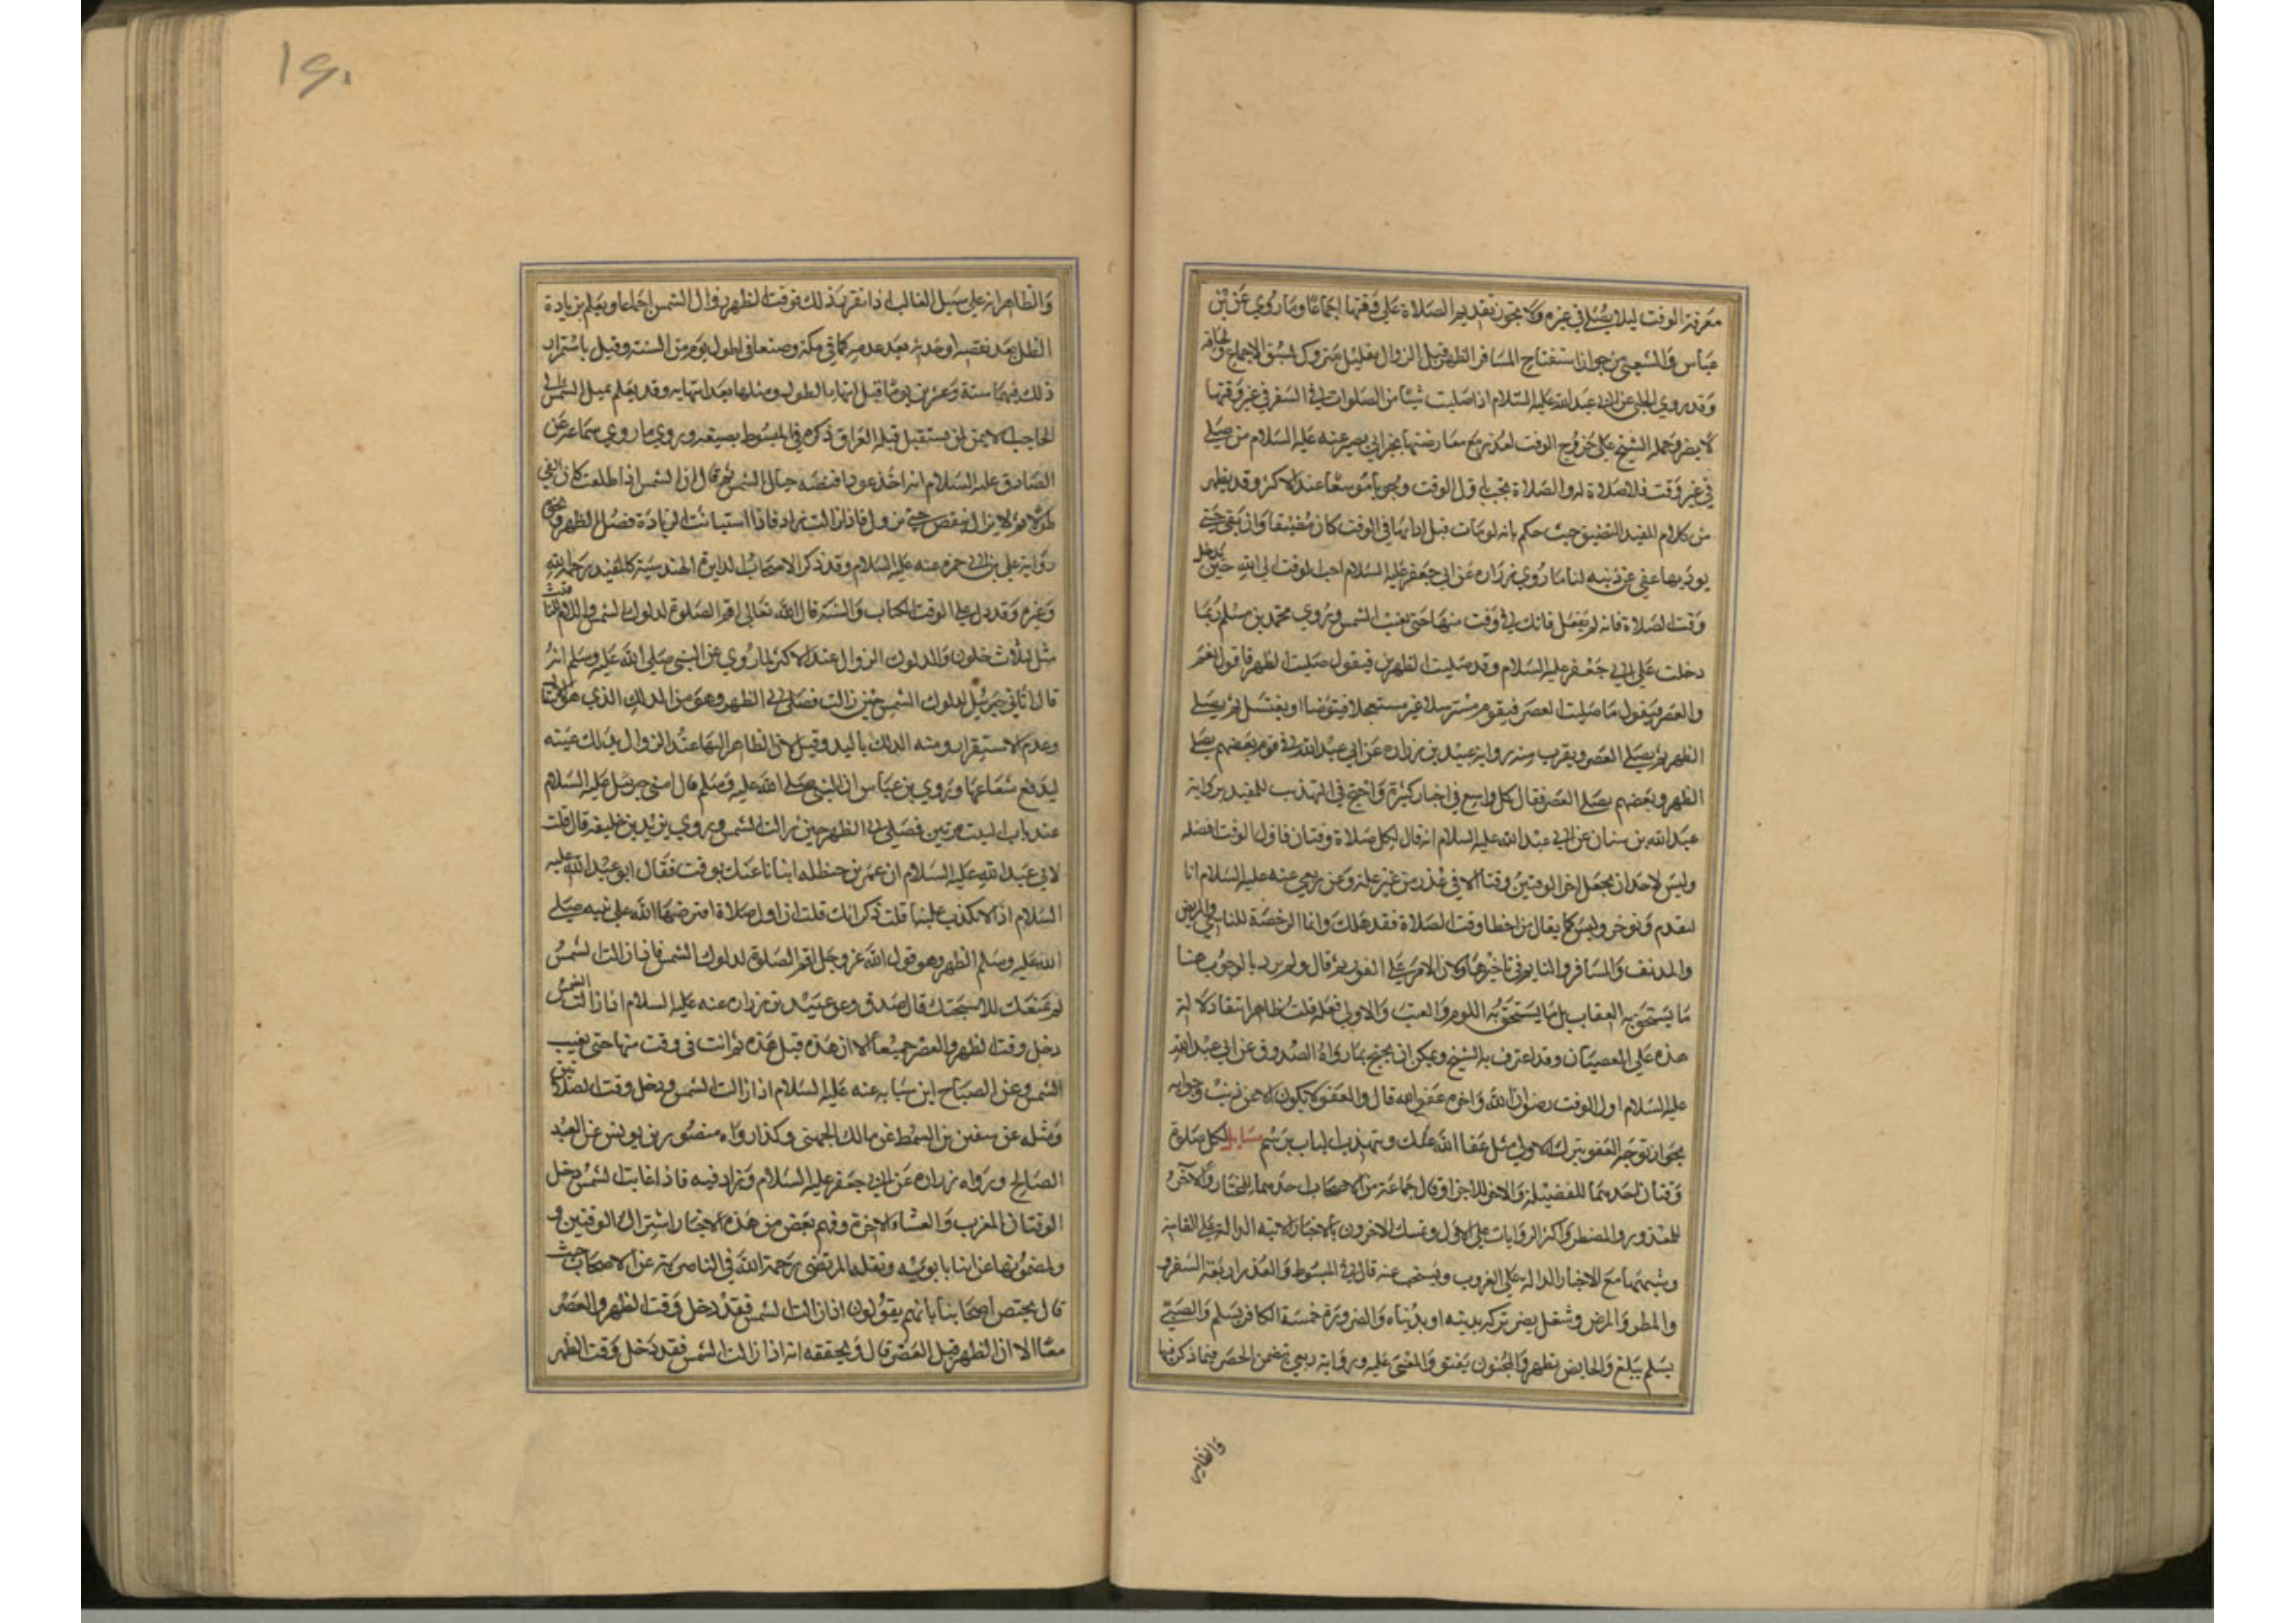 معرفة الوقت ليلا يصلي في غيره ولا يجوز تقديم الصلاة علي وقتها اجماعا وما روي عن بن
عباس والشعبي من جواز استفتاح المسافر الظهر قبل الزوال بقليل متروك لسبق الاجماع ولحاقه
وقد روي الحلبي عن ابي عبد الله عليه السلام اذا صليت شيئا من الصلوات في السفر في غير وقتها
لا يضر وحمله الشيخ علي خروج الوقت لعذر مع معارضتها بخبر ابي بصير عنه عليه السلام من صلي
في غير وقت فلا صلاة له والصلاة تجب باول الوقت وجوبا موسعا عند الاكثر وقد يظهر
من كلام المفيد التضيق حيث حكم بانه لو مات قبل ادايها في الوقت كان مضيقا وان بقي حتي
يوديها عفي عن ذنبه لنا ما روي زراره عن ابي جعفر عليه السلام احب الوقت الي الله حين يدخل
وقت الصلاة فان لم يفعل فانك في وقت منها حتي تغيب الشمس وروي محمد بن مسلم ربما
دخلت علي ابي جعفر عليه السلام وقد صليت الظهرين فيقول صليت الظهر فاقول نعم
والعصر فيقول ما صليت العصر فيقوم مسترسلا غير مستعجلا فيتوضا او يغتسل ثم يصلي
الظهر ثم يصلي العصر ويقرب منه رواية عبيد بن زراره عن ابي عبد الله في قوم بعضهم يصلي
الظهر وبعضهم يصلي العصر فقال كل واسع في اخبار كثيرة واحتج في التهذيب للمفيد برواية
عبد الله بن سنان عن ابي عبد الله عليه السلام انه قال لكل صلاة وقتان فاول الوقت افضله
وليس لاحد ان يجعل اخر الوقتين وقتا الا في عذر من غير علة وعن ربعي عنه عليه السلام انا
لنقدم ونوخر وليس كما يقال من اخطا وقت الصلاة فقد هلك وانما الرخصة للناسي والمريض
والمدنف والمسافر والنايم في تاخيرها ولان الامر علي الفور ثم قال ولم يرد بالوجوب هنا
ما يستحق به العقاب بل ما يستحق به اللوم والعتب والاولي فعله قلت ظاهر انتفا دلالة
هذه علي العصيان وقد اعترف به الشيخ ويمكن ان يحتج بما رواه الصدوق عن ابي عبد الله
عليه السلام اول الوقت رضوان الله واخره عفو الله قال والعفو لا يكون الا عن ذنب وجوابه
بجواز توجه العفو بترك الاولي مثل عفا الله عنك مسايل لكل صلوة
وقتان احدهما للفضيلة والاخر للاجزا وقال جماعة من الاصحاب احدهما للمختار والاخر
للمعذور والمضطر واكثر الروايات علي الاول وتمسك الاخرون بالاخبار الاتيه الدالة علي القامة
وشبهها مع الاخبار الدالة علي الغروب ويستحب عنه قال في المبسوط والعذر اربعة السفر و
والمطر والمرض وشغل يضر تركه بدينه او بدنياه والضرورة خمسة الكافر يسلم والصبي
يسلم يبلغ والحايض تطهر والمجنون يفيق والمغمي عليه ورواية ربعي تتضمن الحصر فيما ذكر فيها
والظاهر
١٤٠
والظاهر انه علي سبيل الغالب اذا تقرر ذلك فوقت الظهر زوال الشمس اجماعا ويعلم بزيادة
الظل بعد نقصه او حدثه بعد عدمه كما في مكة وصنعا في اطول يوم من السنة وقيل باستمرار
ذلك فيهما ستة وعشرين يوما قبل انتها الطول ومثلها بعد انتهايه وقد يعلم بميل الشمس الي
الحاجب الايمن لمن يستقبل قبلة العراق ذكره في المبسوط بصيغة وروي ما روي سماعة عن
الصادق عليه السلام انه اخذ عودا فنصبه حيال الشمس ثم قال ان الشمس اذا طلعت كان الفي
طويلا ثم لا يزال ينقص حتي تزول فاذا زالت زاد فاذا استبانت الزيادة فصل الظهر ونحوه
رواية علي بن ابي حمزه عنه عليه السلام وقد ذكر الاصحاب الدايرة الهندسية كالمفيد رحمه الله
وغيره وقد دل علي الوقت الكتاب والسنة قال الله تعالي اقم الصلوة لدلوك الشمس واللام للتاقيت
مثل لثلاث خلون والدلوك الزوال عند الاكثر لما روي عن النبي صلي الله عليه وسلم انه
قال اتاني جبرئيل لدلوك الشمس حين زالت فصلي بي الظهر وهو من الدلك الذي هو الانتقال
وعدم الاستقرار ومنه الدلك باليد وقيل لان الناظر اليها عند الزوال يدلك عينه
ليدفع شعاعها وروي بن عباس ان النبي صلي الله عليه وسلم قال امني جبرئيل عليه السلام
عند باب البيت مرتين فصلي بي الظهر حين زالت الشمس وروي يزيد بن خليفه قال قلت
لابي عبد الله عليه السلام ان عمر بن حنظله اتانا عنك بوقت فقال ابو عبد الله عليه
السلام اذا لا يكذب علينا قلت ذكر انك قلت ان اول صلاة افترضها الله علي نبيه صلي
الله عليه وسلم الظهر وهو قول الله عز وجل اقم الصلوة لدلوك الشمس فاذا زالت الشمس
لم يمنعك الا سبحتك قال صدق وعن عبيد بن زراره عنه عليه السلام اذا زالت الشمس
دخل وقت الظهر والعصر جميعا الا ان هذه قبل هذه ثم انت في وقت منها حتي تغيب
الشمس وعن الصباح ابن سيابه عنه عليه السلام اذا زالت الشمس دخل وقت الصلاتين
ومثله عن سفين بن السمط عن مالك الجهني وكذا رواه منصور بن يونس عن العبد
الصالح ورواه زراره عن ابي جعفر عليه السلام وزاد فيه فاذا غابت الشمس دخل
الوقتان المغرب والعشا الاخرة وفهم بعض من هذه الاخبار اشتراك الوقتين و
ولمضمونها عن ابنا بابويه ونقله المرتضي رحمة الله في الناصرية عن الاصحاب حيث
قال يختص اصحابنا بانهم يقولون اذا زالت الشمس فقد دخل وقت الظهر والعصر
معا الا ان الظهر قبل العصر قال وتحقيقه انه اذا زالت الشمس فقد دخل وقت الظهر